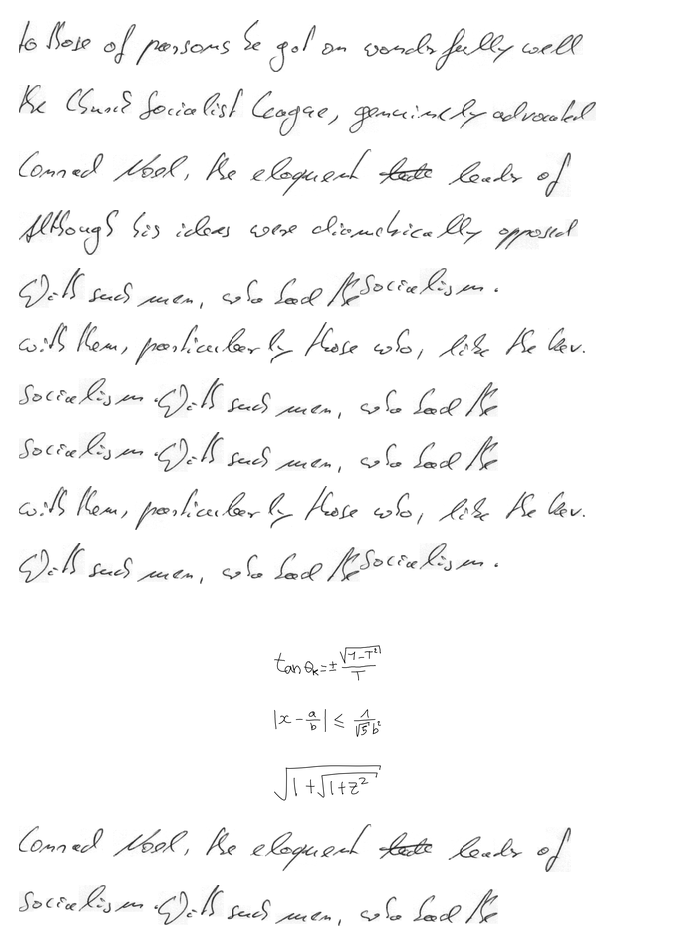 to those of parsons he got on wonderfully well
the Church Socialist League, genuinely advocated
Conrad Noel, the eloquent leader of
Although his ideas were diametrically opposed
With such men, who had the Socialism.
with them, particularly those who, like the Rev.
Socialism. With such men, who had the
Socialism. With such men, who had the
with them, particularly those who, like the Rev.
With such men, who had the Socialism.
tan θ_k = ± \frac{\sqrt{1-T^2}}{T}
|x - \frac{a}{b}| ≤ \frac{1}{\sqrt{5} b^2}
\sqrt{1+\sqrt{1+z^2}}
Conrad Noel, the eloquent leader of
Socialism. With such men, who had the